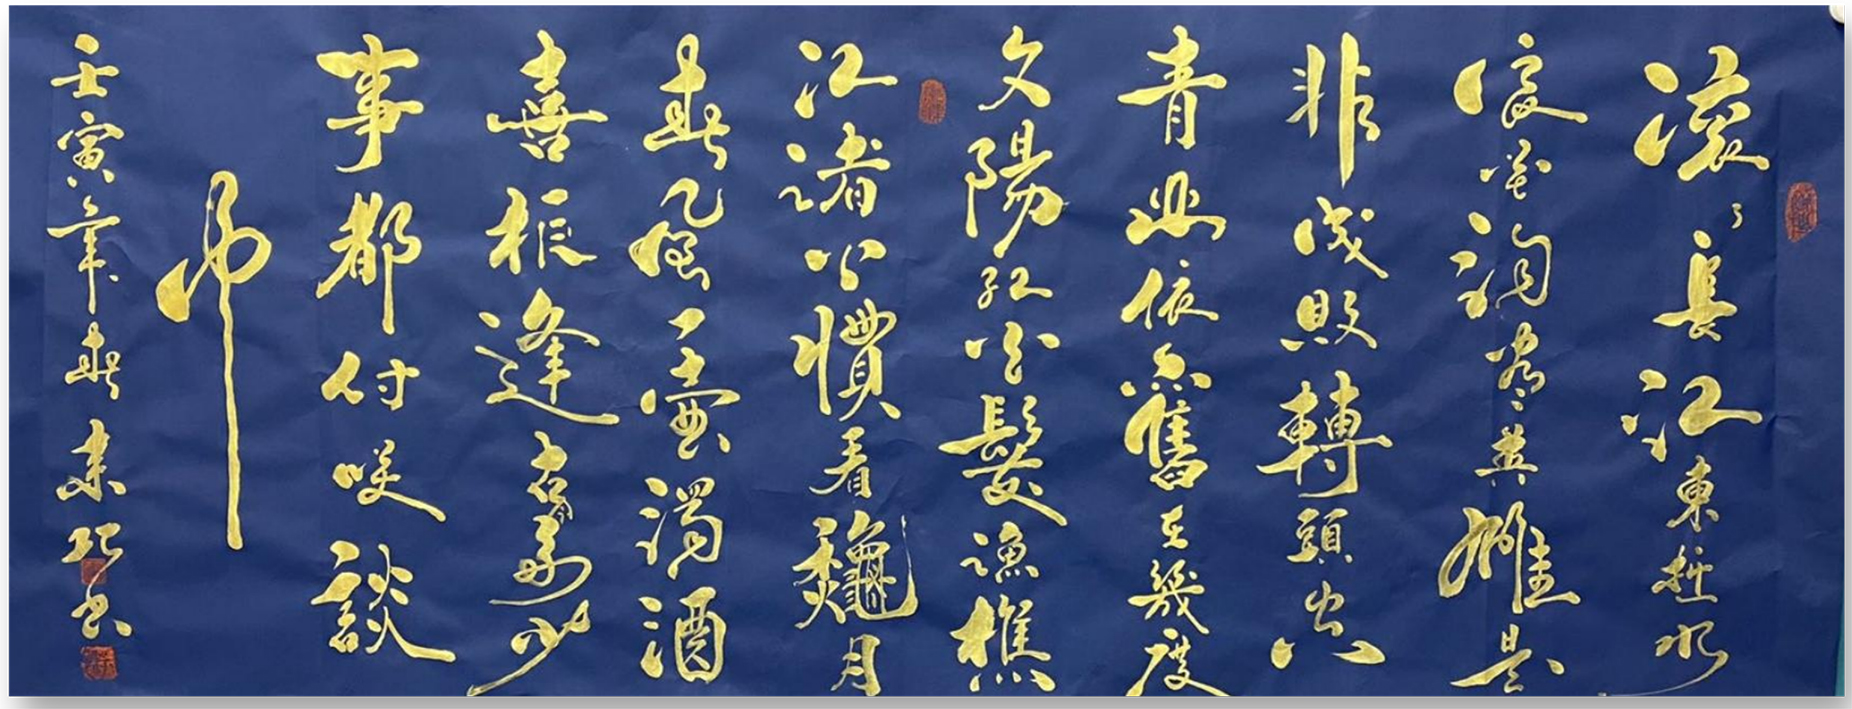 滾々長江東逝水
浪花淘盡英雄是
非成敗轉頭空
青山依舊在幾度
夕陽紅白髮漁樵
江渚上慣看龝月
春風一壺濁酒
喜相逢古今多少
事都付咲談
中
壬寅年春書